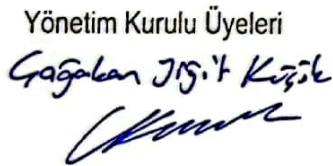 Yönetim Kurulu Üyeleri
Çağakan Yiğit Küçük